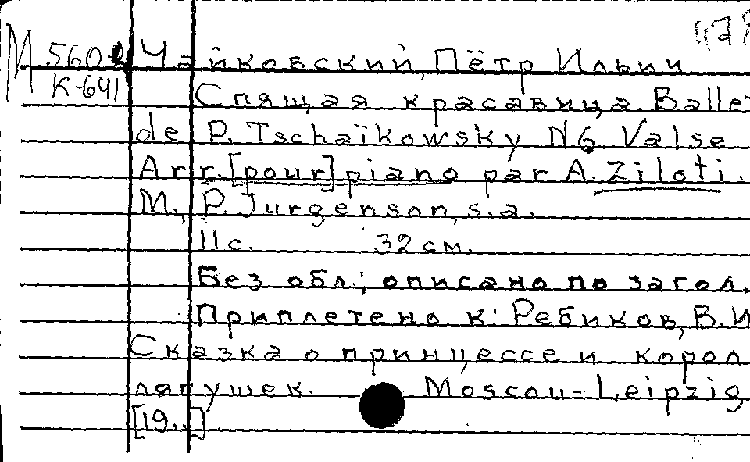 М 560
Чайковский, Пётр Ильич
К-641
Спящая красавица. Ballet
de P. Tschaïkowsky N6 Valse
Arr. [pour] piano par A. Ziloti.
M., P. Jurgenson, s.a.
11 с. 32 см.
Без обл.; описано по загол.
Приплетено к: Ребиков, В.И
Сказка о принцессе и корол
лягушек. Moscou-Leipzig
[19..]